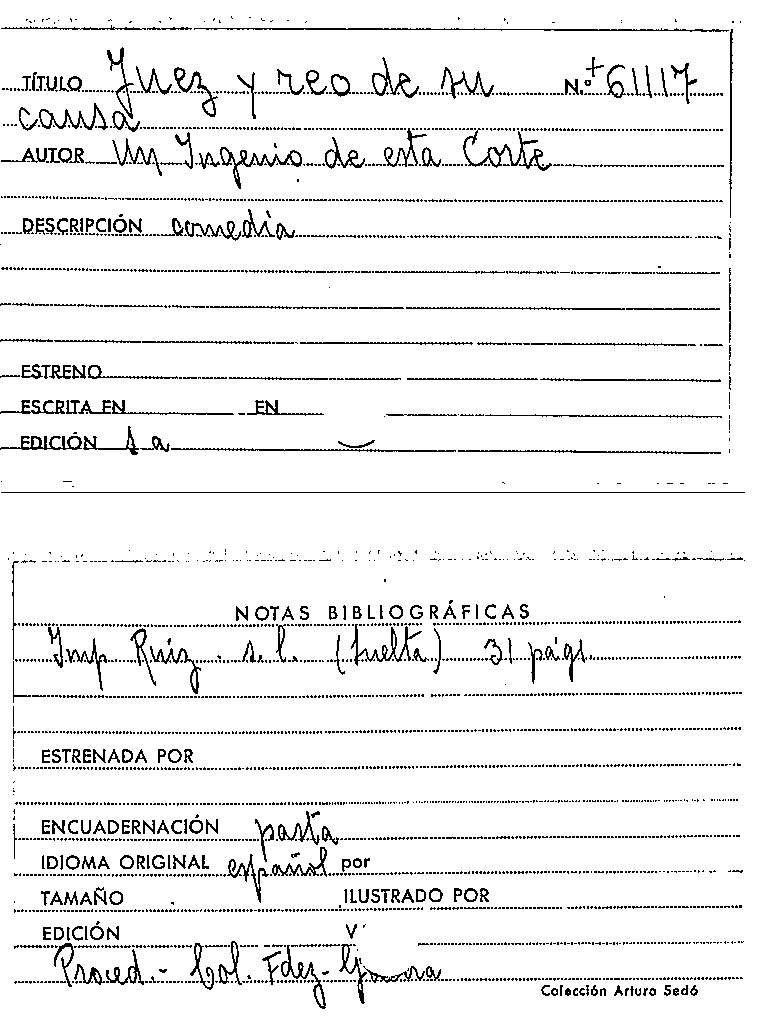 TÍTULO Juez y reo de su N.º + 61117
causa
AUTOR Un Ingenio de esta Corte
DESCRIPCIÓN comedia
ESTRENO
ESCRITA EN EN
EDICIÓN 1a
NOTAS BIBLIOGRÁFICAS
Imp Ruiz. s.l. (suelta) 31 págs.
ESTRENADA POR
ENCUADERNACIÓN pasta
IDIOMA ORIGINAL español por
TAMAÑO ILUSTRADO POR
EDICIÓN V
Proced.- Col. Fdez-
Colección Arturo Sedó